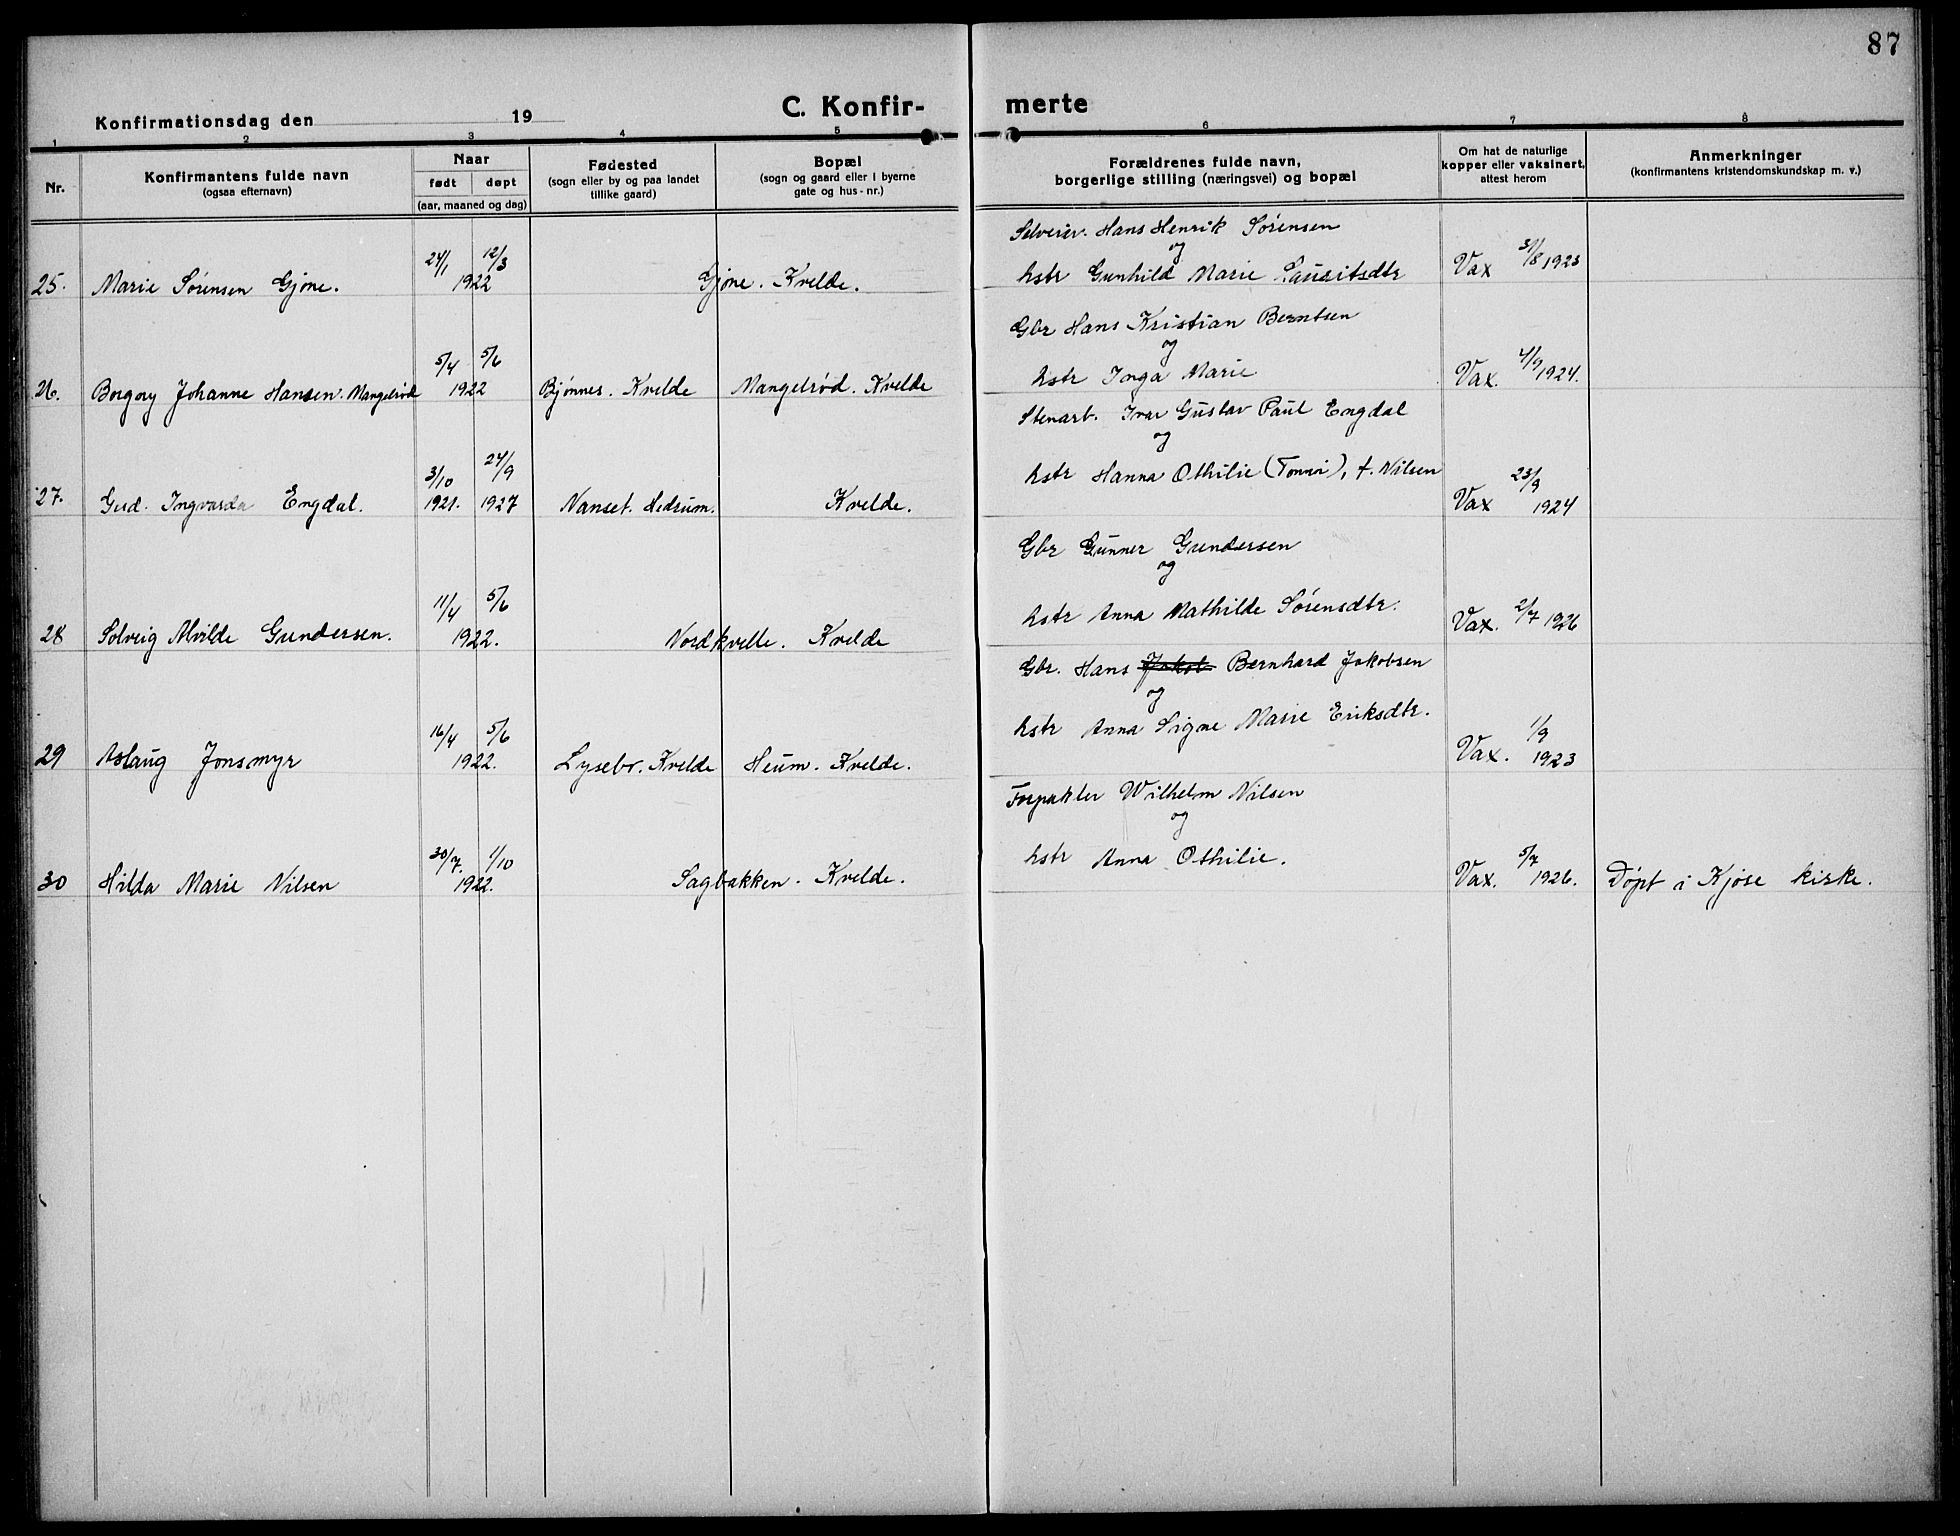 87
C. Konfir- merte
Konfirmationsdag den 19
1 2 3 4 5 6 7 8
Nr.
Konfirmantens fulde navn
(ogsaa efternavn)
Naar
født døpt
(aar, maaned og dag)
Fødested
(sogn eller by og paa landet
tillike gaard)
Bopæl
(sogn og gaard eller i byerne
gate og hus-nr.)
Forældrenes fulde navn,
borgerlige stilling (næringsvei) og bopæl
Om hat de naturlige
kopper eller vaksinert,
attest herom
Anmerkninger
(konfirmantens kristendomskundskap m. v.)
Selveier. Hans Henrik Sørensen
og
24/1 12/3
25. Marie Sørensen Gjone. 1922 Gjone. Kvelde. hstr Gunhild Marie Lauritsdtr Vax 31/8 1923
Gbr Hans Kristian Berntsen
og
5/4 5/6 4/9
26. Borgny Johanne Hansen. Mangelrød 1922 Bjønnes. Kvelde Mangelrød. Kvelde hstr Inga Marie Vax. 1924.
Stenarb. Ivar Gustav Paul Engdal
og
3/10 24/9 hstr Hanna Othilie (Tonnoi), f. Nilsen 23/9
27. Gud. Ingvarda Engdal. 1921. 1927 Nanset. Hedrum. Kvelde. Vax 1924
Gbr Gunner Gundersen
og
11/4 5/6 hstr Anna Mathilde Sørensdtr.
28 Solveig Alvilde Gundersen. 1922. Nordkvelle. Kvelde Vax. 2/7 1926
Gbr. Hans Jakob Bernhard Jakobsen
og
16/4 5/6 hstr Anna Signe Marie Eriksdtr. 1/9
29 Aslaug Jonsmyr 1922. Lysebr. Kvelde Heum. Kvelde. Vax. 1923
Forpakter Wilhelm Nilsen
og
30/7. 1/10 hstr Anna Othilie. 5/7
30 Hilda Marie Nilsen 1922. Sagbakken. Kvelde. Vax. 1926. Døpt i Kjøse kirke.